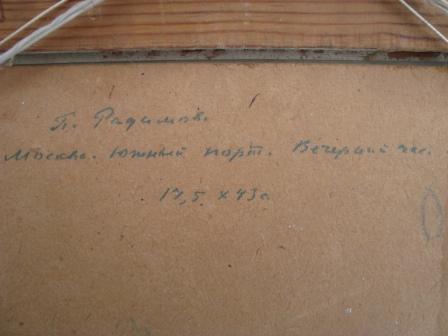 П. Радимов.
Москва. Южный порт. Вечерний час.
17,5 х 43 с